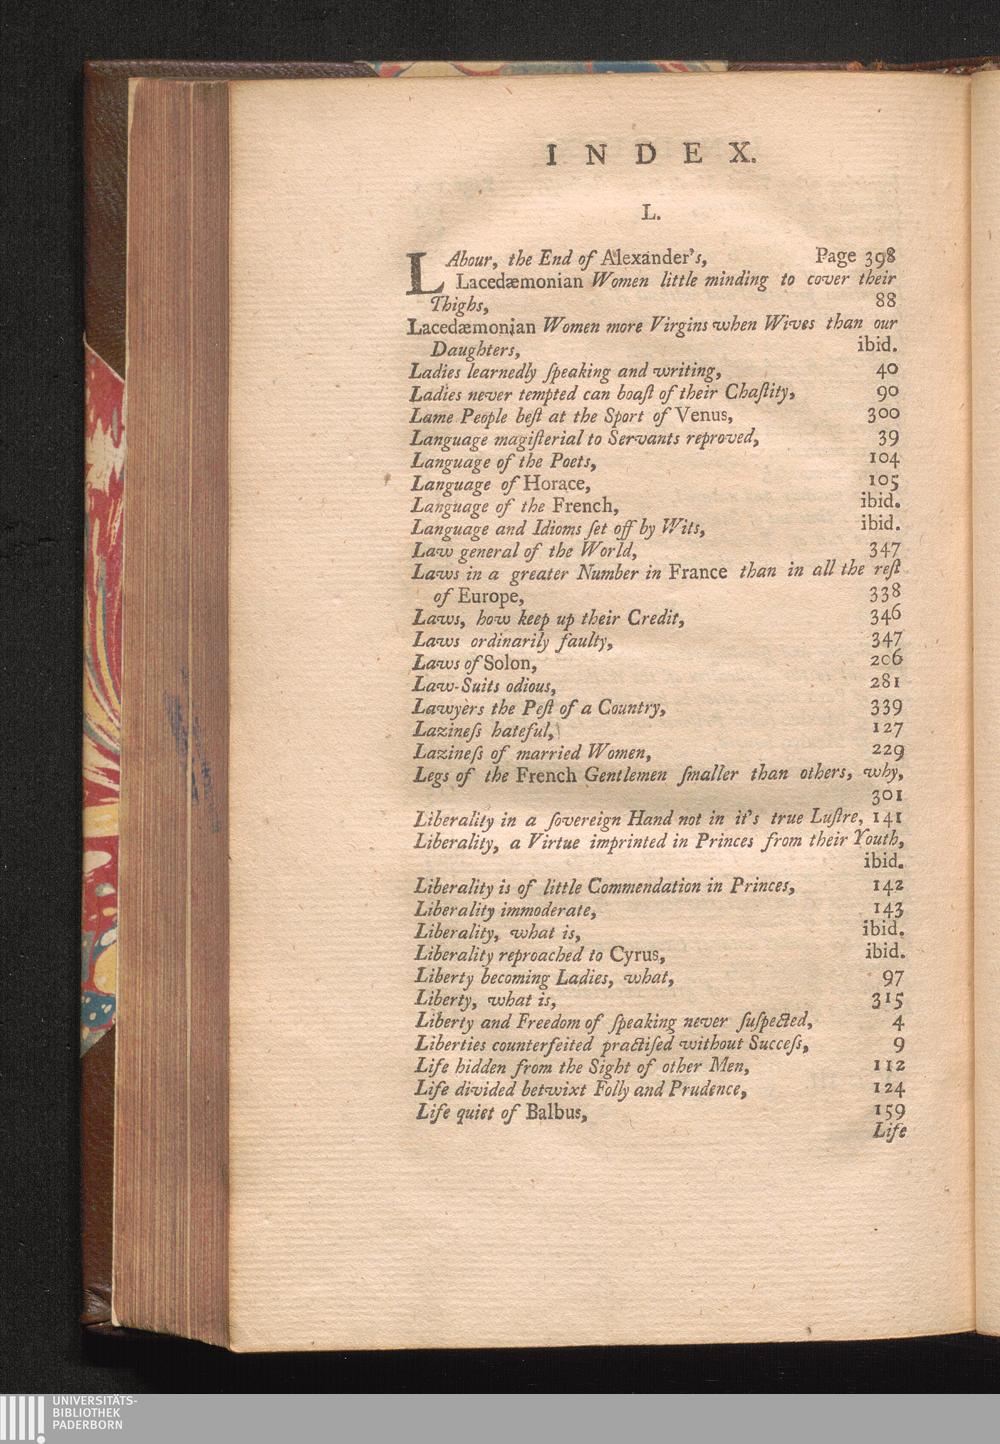 INDEX.
L.
LAbour, the End of Alexander's, Page 398
Lacedæmonian Women little minding to cover their
Thighs, 88
Lacedæmonian Women more Virgins when Wives than our
Daughters, ibid.
Ladies learnedly ſpeaking and writing, 40
Ladies never tempted can boaſt of their Chaſtity, 90
Lame People beſt at the Sport of Venus, 300
Language magiſterial to Servants reproved, 39
Language of the Poets, 104
Language of Horace, 105
Language of the French, ibid.
Language and Idioms ſet off by Wits, ibid.
Law general of the World, 347
Laws in a greater Number in France than in all the reſt
of Europe, 338
Laws, how keep up their Credit, 346
Laws ordinarily faulty, 347
Laws of Solon, 206
Law-Suits odious, 281
Lawyers the Peſt of a Country, 339
Lazineſs hateful, 127
Lazineſs of married Women, 229
Legs of the French Gentlemen ſmaller than others, why,
301
Liberality in a ſovereign Hand not in it's true Luſtre, 141
Liberality, a Virtue imprinted in Princes from their Youth,
ibid.
Liberality is of little Commendation in Princes, 142
Liberality immoderate, 143
Liberality, what is, ibid.
Liberality reproached to Cyrus, ibid.
Liberty becoming Ladies, what, 97
Liberty, what is, 315
Liberty and Freedom of ſpeaking never ſuſpected, 4
Liberties counterfeited practiſed without Succeſs, 9
Life hidden from the Sight of other Men, 112
Life divided betwixt Folly and Prudence, 124
Life quiet of Balbus, 159
Life
UNIVERSITÄTS-
BIBLIOTHEK
PADERBORN